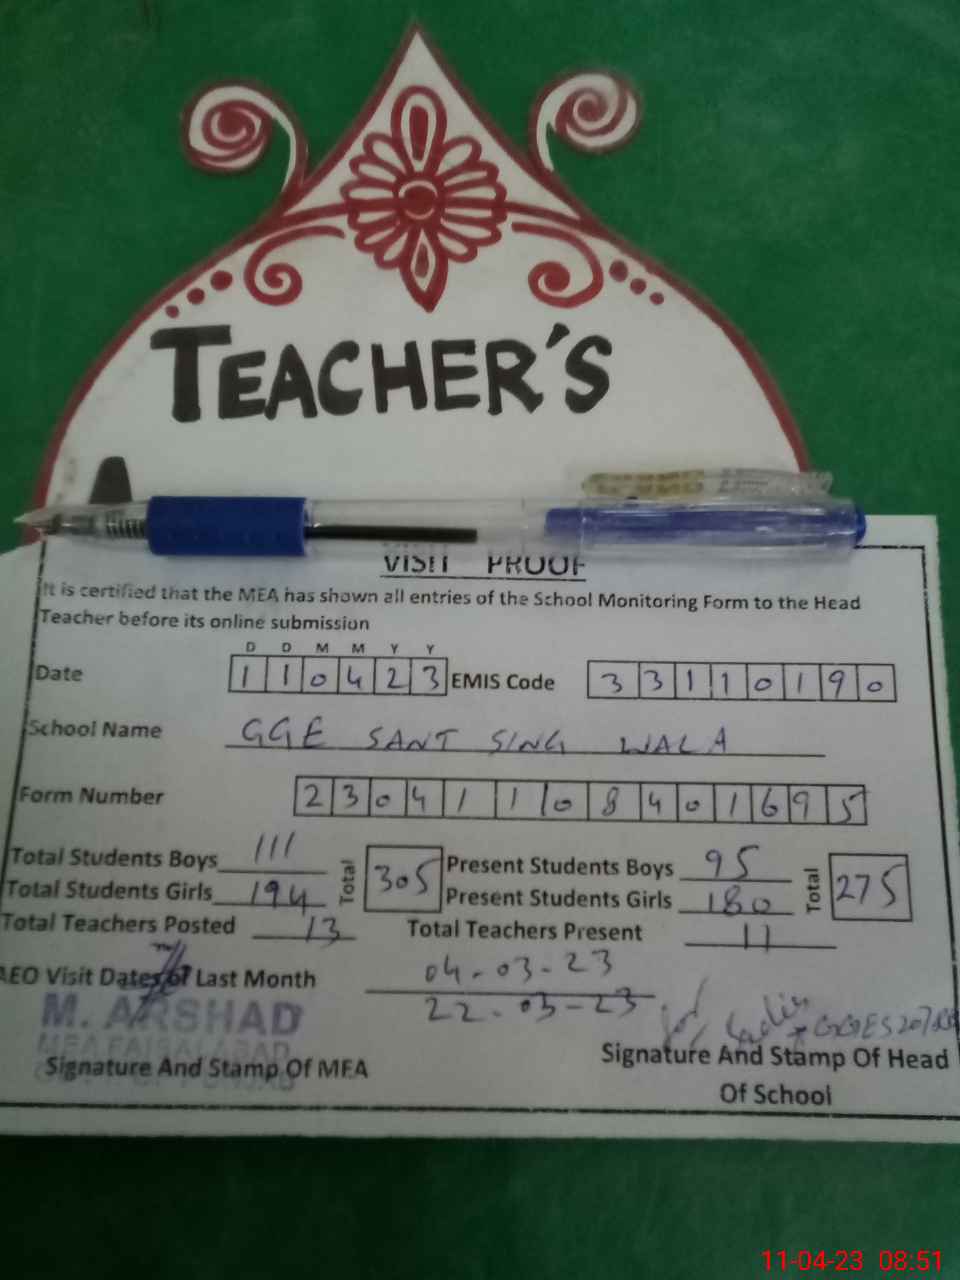 TEACHER'S
VISIT PROOF
It is certified that the MEA has shown all entries of the School Monitoring Form to the Head
Teacher before its online submission
D D M M Y Y
Date 1 1 0 4 2 3 EMIS Code 3 3 1 1 0 1 9 0
School Name GGE SANT SING WALA
Form Number 2 3 0 4 1 1 0 8 4 0 1 6 9 5
Total Students Boys 111 Total 305 Present Students Boys 95 Total 275
Total Students Girls 194 Present Students Girls 180
Total Teachers Posted 13 Total Teachers Present 11
AEO Visit Dates of Last Month 04-03-23
22-03-23
M. ARSHAD
MEA FAISALABAD
Signature And Stamp Of MEA
Signature And Stamp Of Head
Of School
11-04-23 08:51